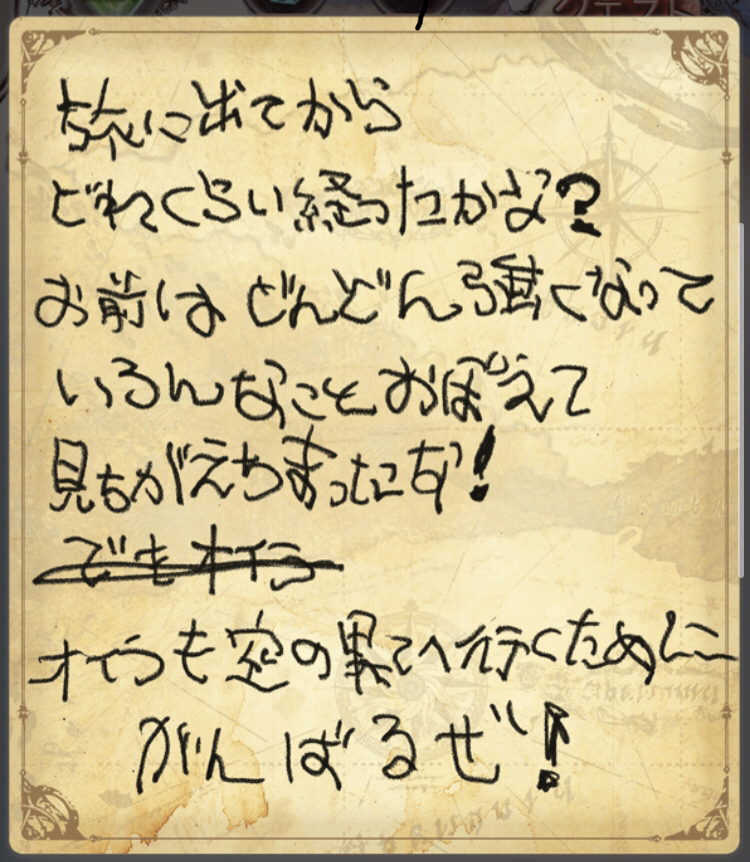 旅に出てから
どれくらい経ったかな?
お前は どんどん強くなって
いろんなことおぼえて
見ちがえちまったな!
でもオイラ
オイラも空の果てへ行くために
がんばるぜ!